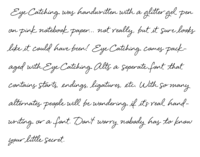 Eye Catching was handwritten with a glitter gel pen
on pink notebook paper... not really, but it sure looks
like it could have been! Eye Catching comes pack-
aged with Eye Catching Alts a separate font that
contains starts, endings, ligatures, etc. With so many
alternates people will be wondering if it's real hand-
writing or a font. Don't worry nobody has to know
your little secret.